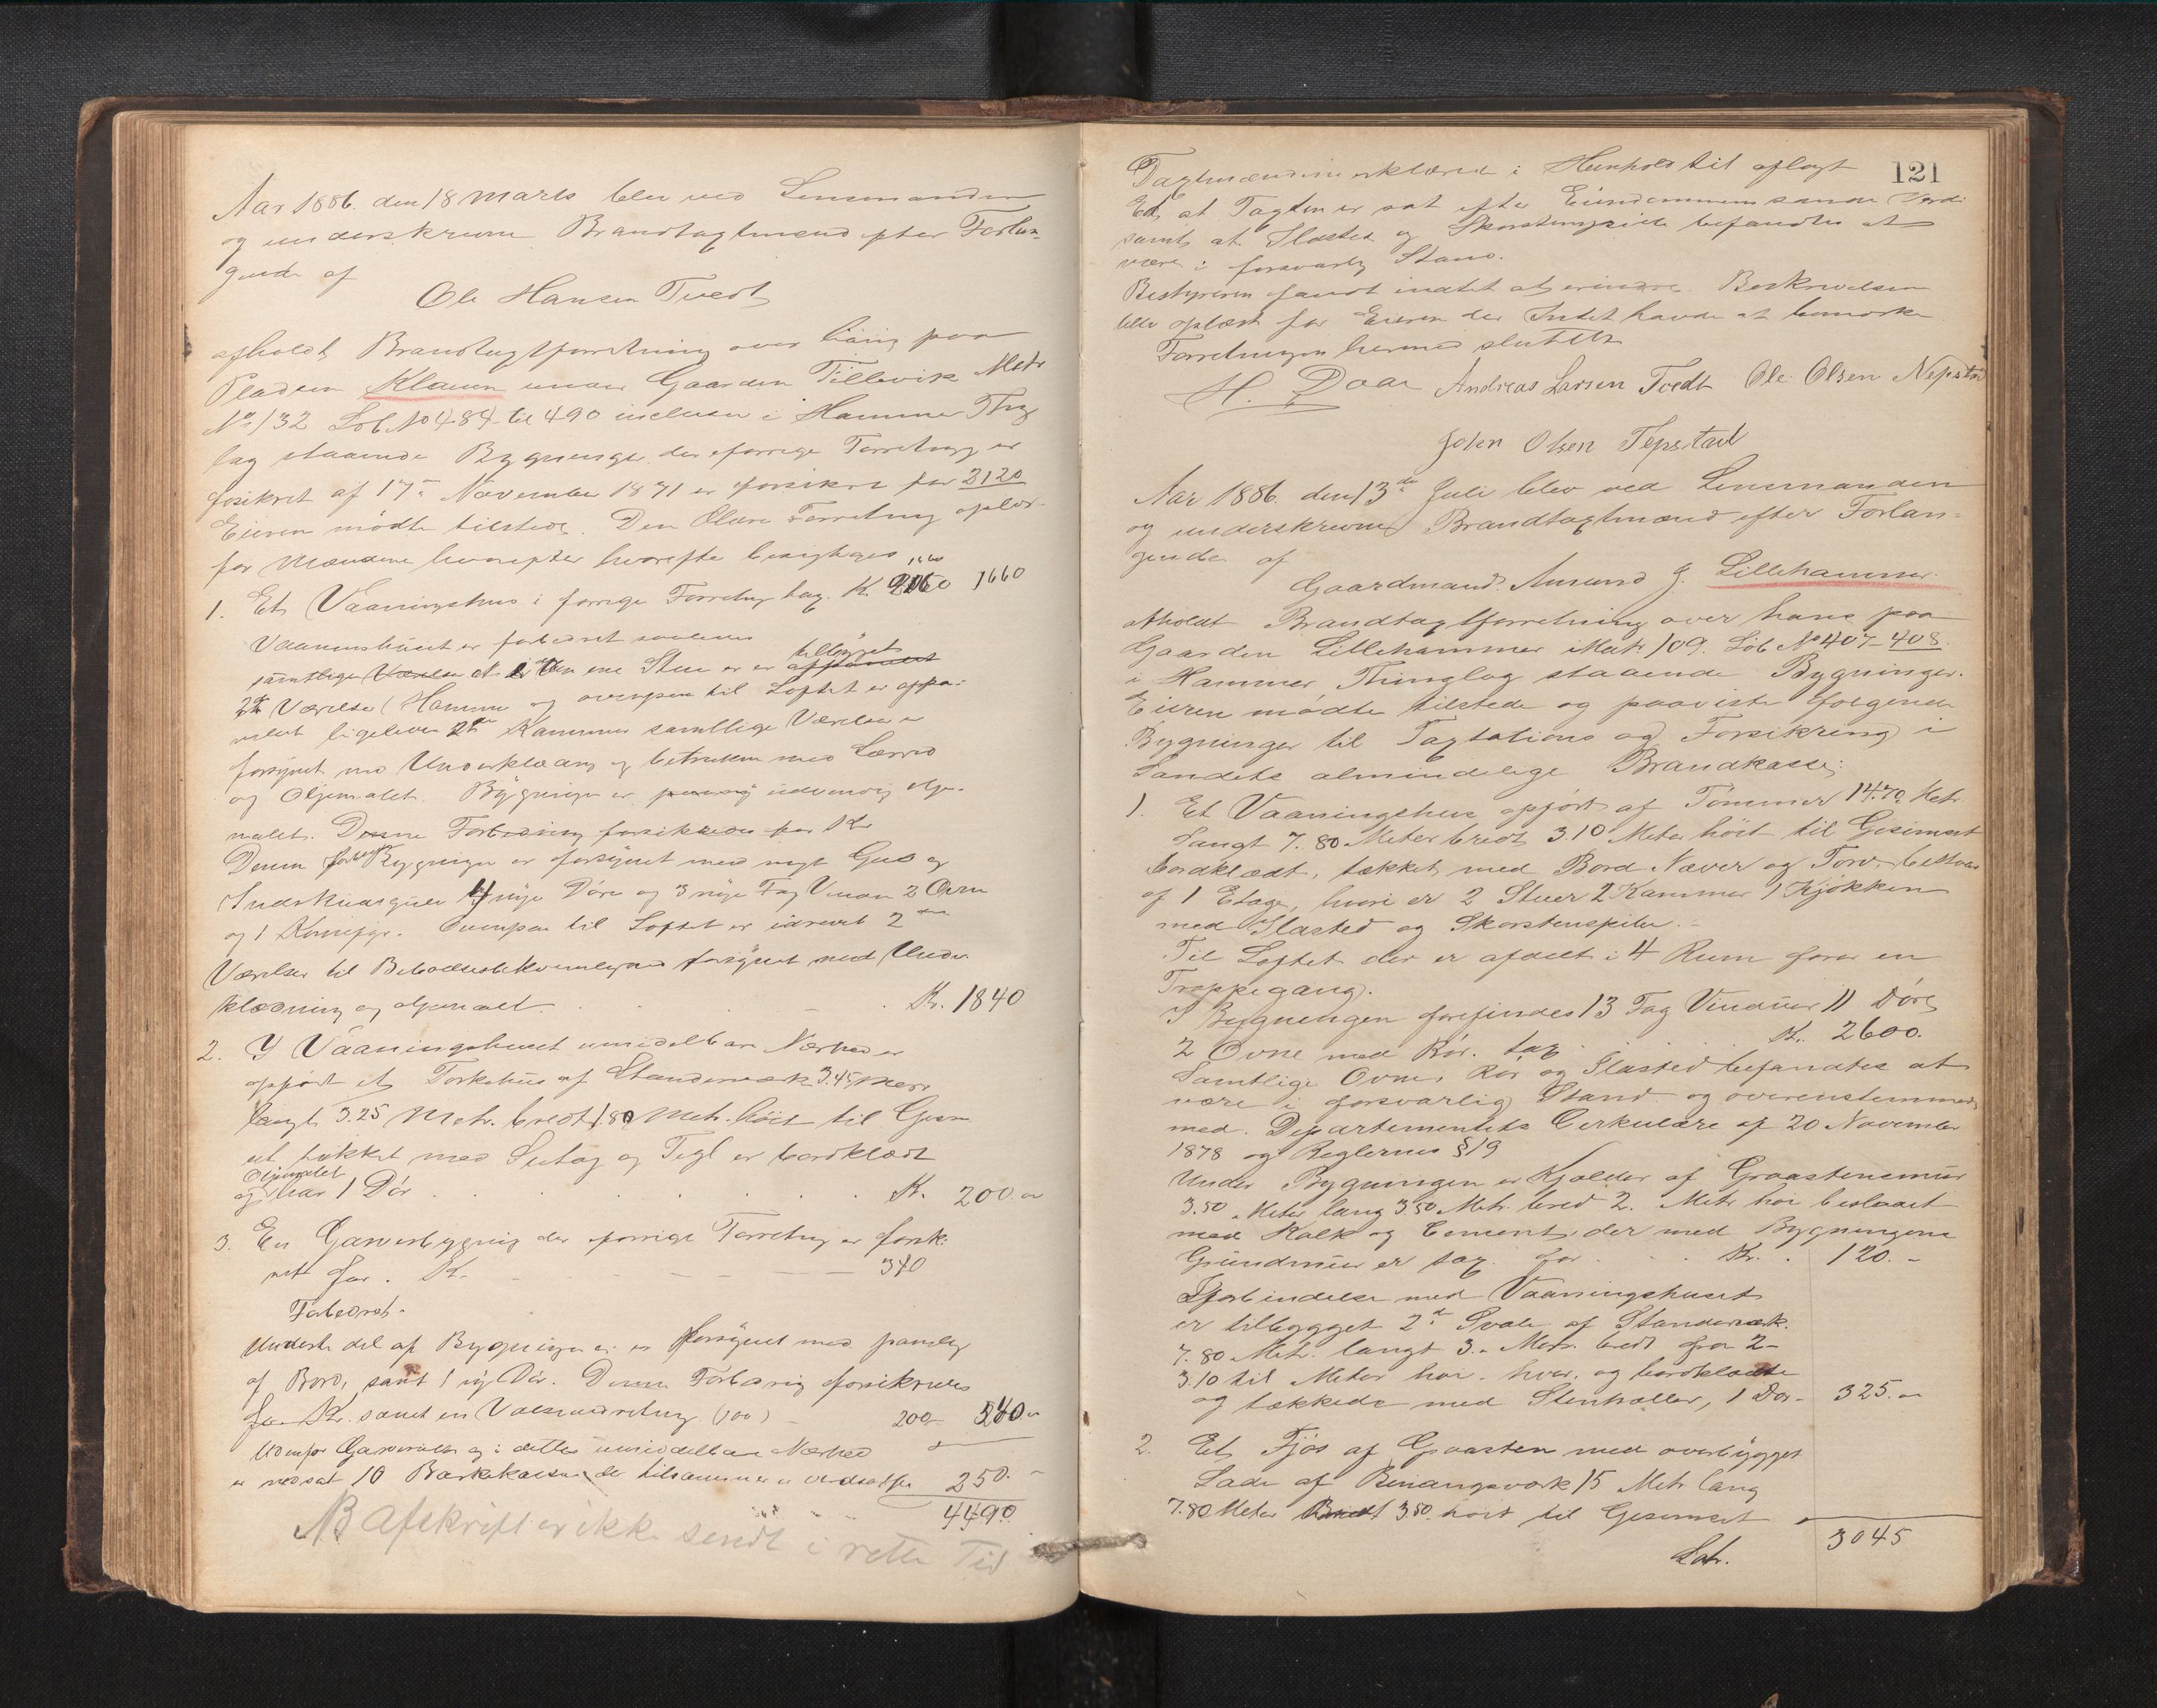 Aar 1886. den 18 Marts blev ved Lensmanden
og underskrevne Brandtagtmænd efter Forlan-
gende af
Ole Hansen Tvedt
afholdt Brandtagtforretning over hans paa
Pladsen Klauen under Gaarden Tillevik Matr
No 132 Løb No 484 til 490 inclusiv i Hammer Thing
lag staaende Bygninger der forrige Forretning er
forsikret af 17de November 1871 er forsikret for 2120
Eieren mødte tilstede. Den Ældre Forretning oplæst
for Mændene hvorefter besigtiges
1. Et Vaaningshus i forrige Forretning tax. K. 2160 1660
Vaaningshuset er forbedret saaledes
samtlige Værelser at i den ene Stue er tilbygget
2de Værelser (Kammer og ovenpaa til Loftet er oppa-
nelet ligeledes 2de Kammer samtlige Værelser er
forsynet med Underklædning og betrukken med Lærred
og Oljemalet. Bygningen er udvendig olje-
malet. Denne Forbedring forsikkredes for Kr
Denne Bygningen er forsynet med nyt Gulv og
4 nye Døre og 3 nye Fag Vinduer 2 Ovne
og 1 Komfyr. Ovenpaa til Loftet er indredet 2de
Værelser til Beboelsesbekvemlighed forsynet med Under
klædning og oljemalt. Kr. 1840
2. I Vaaningshuset umiddelbare Nærhed er
opført et Torkehus af Standerværk 3.45 Meter
langt 3.25 Metr. bredt 1.80 Metr. höit til Gesim
set tækket med Sutag og Tegl er bordklædt
Oljemalet
og har 1 Dör K. 200.00
3. En Garverbygning der forrige Forretning er forsik-
ret for. Kr. 340
Forbedret.
Underste del af Bygningen er forsynet med paneling
af Bord, samt 1 ny Dör. Denne Forbedring forsikredes
for Kr. samt en Valseindretning (100) 200 – 540.00
Udenfor Garveriet og i dettes umiddelbare Nærhed
er nedsat 10 Barkekarser der tilsammen er værdsat for 250.–
4490.
NB Afskrift er ikke sendt i rette Tid

121
Tagtmændene erklærede i Henhold til aflagt
Ed, at Tagten er sat efter Eiendommens sande Værdi
samt at Ildsted og Skorstenspiber befandtes at
være i forsvarlig Stand.
Bestyreren fandt intet at erindre. Beskrivelsen
blev oplæst for Eieren der Intet havde at bemærke
Forretningen hermed sluttet
H. Daae Andreas Larsen Tvedt Ole Olsen Nepstad
John Olsen Tepstad
Aar 1886. den 13de Juli blev ved Lensmanden
og underskrevne Brandtagtmænd efter Forlan-
gende af
Gaardmand Amund J. Lillehammer.
afholdt Brandtagtforretning over hans paa
Gaarden Lillehammer Matr 109. Löb No 407–408.
i Hammer Thinglag staaende Bygninger.
Eieren mødte tilstede og paaviste følgende
Bygninger til Taxtations og Forsikring i
Landets almindelige Brandkasse:
1. Et Vaaningshus opført af Tömmer 14.70 Metr
Langt 7.80 Meter bredt 3.10 Meter höit til Gesimset
bordklædt, tækket med Bord Næver og Torv bestaar
af 1 Etage, hvori er 2 Stuer 2 Kammer 1 Kjøkken
med Ildsted og Skorstenspibe.
Til Loftet der er afdelt i 4 Rum fører en
Trappegang.
I Bygningen forefindes 13 Fag Vinduer 11 Döre
2 Ovne med Rör. tax Kr. 2600.
Samtlige Ovne, Rör og Ildsted befandtes at
være i forsvarlig Stand og overenstemmende
med Departementets Cirkulære af 20 November
1878 og Reglernes § 19
Under Bygningen er Kjælder af Graastensmur
3.50 Meter lang 3.50 Metr. bred 2. Metr høi beslaaet
med Kalk og Cement, der med Bygningens
Grundmur er tax. for Kr. 120.–
I forbindelse med Vaaningshuset
er tilbygget 2de Svale af Standerværk.
7.80 Metr. langt 3. Metr. bredt fra 2–
3.10 til Meter høi hver, og bordklædte
og tækkede med Stenhæller, 1 Dör – 325.00
2. Et Fjøs af Graasten med overbygget
Lade af Bindingsværk 15 Metr lang
7.80 Meter Bredt 3.50 höit til Gesimset
Lat. 3045